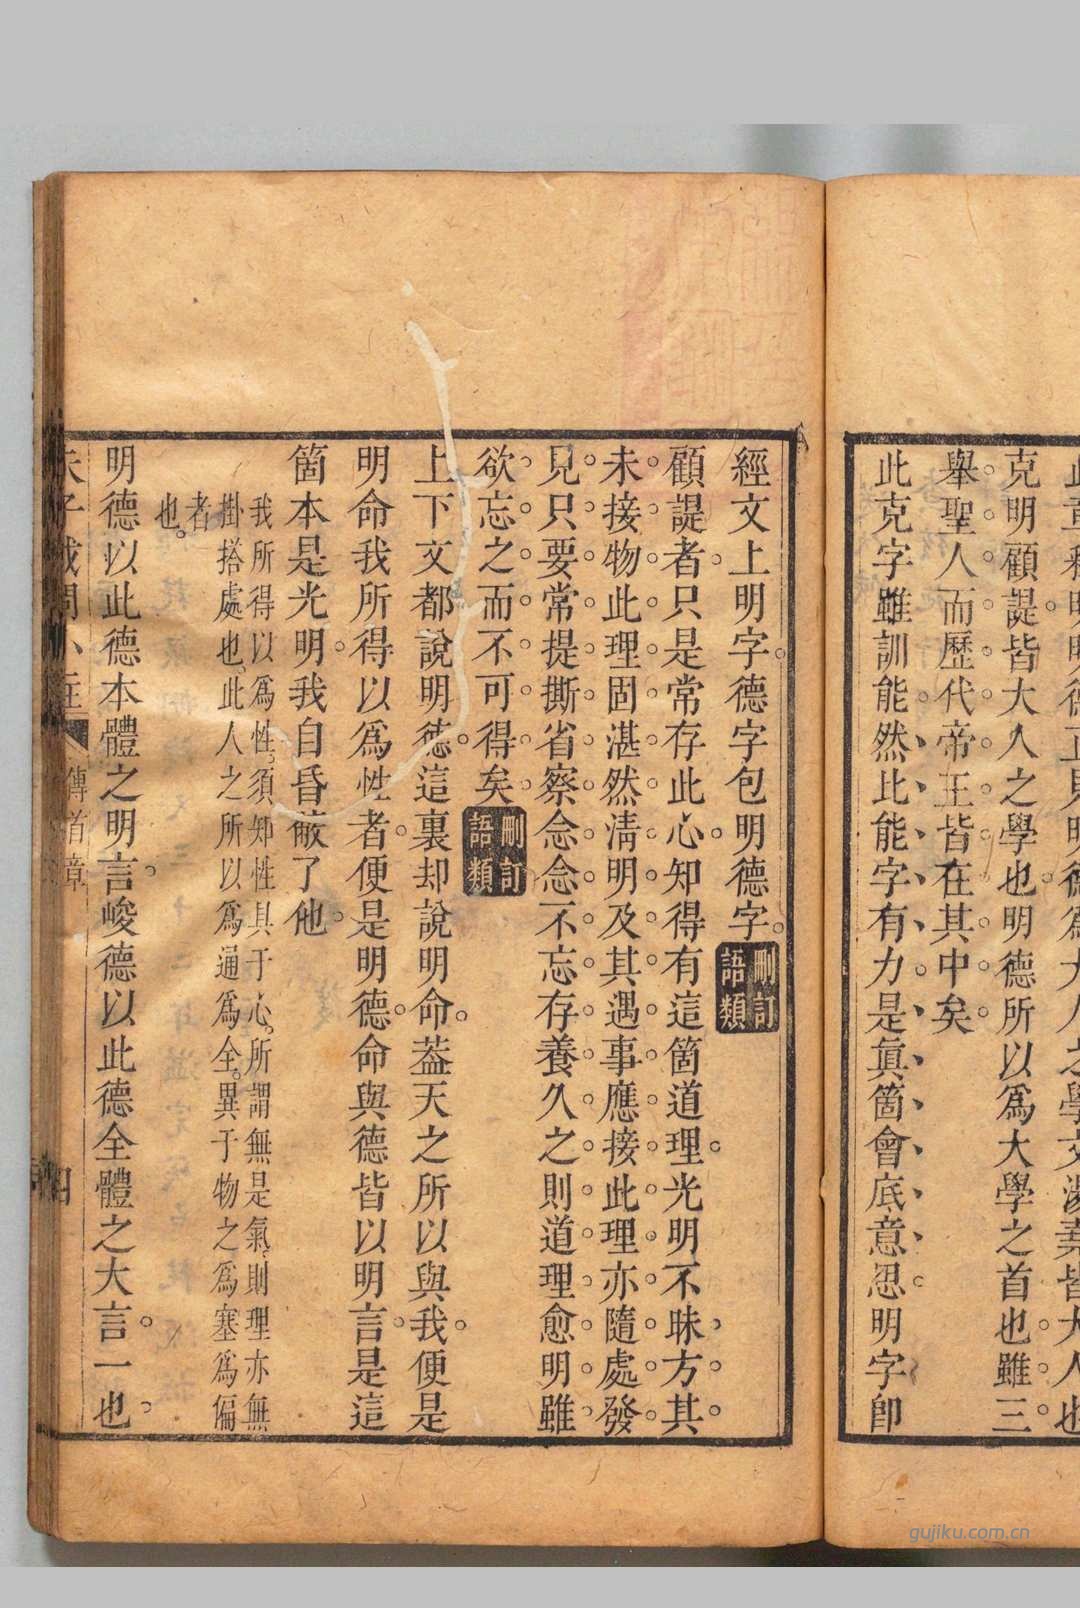 此章釋明明德正見明德為大人之學文淵業皆大人也
克明顧諟皆大人之學也明德所以為大學之首也雖三
舉聖人而歷代帝王皆在其中矣
此克字雖訓能然比能字有力是眞箇會底意思明字卽
經文上明字德字包明德字
刪訂語類
顧諟者只是常存此心知得有這箇道理光明不昧方其
未接物此理固湛然淸明及其遇事應接此理亦隨處發
見只要常提撕省察念念不忘存養久之則道理愈明雖
欲忘之而不可得矣
刪訂語類
上下文都說明德這裏却說明命葢天之所以與我便是
明命我所得以爲性者便是明德命與德皆以明言是這
箇本是光明我自昏蔽了他
我所得以爲性須知性具于心所謂無是氣則理亦無
掛搭處也此人之所以爲通爲全異于物之爲塞爲偏
者
也
明德以此德本體之明言峻德以此德全體之大言一也
朱子或問小註
傳首章
四
gujiku.com.cn